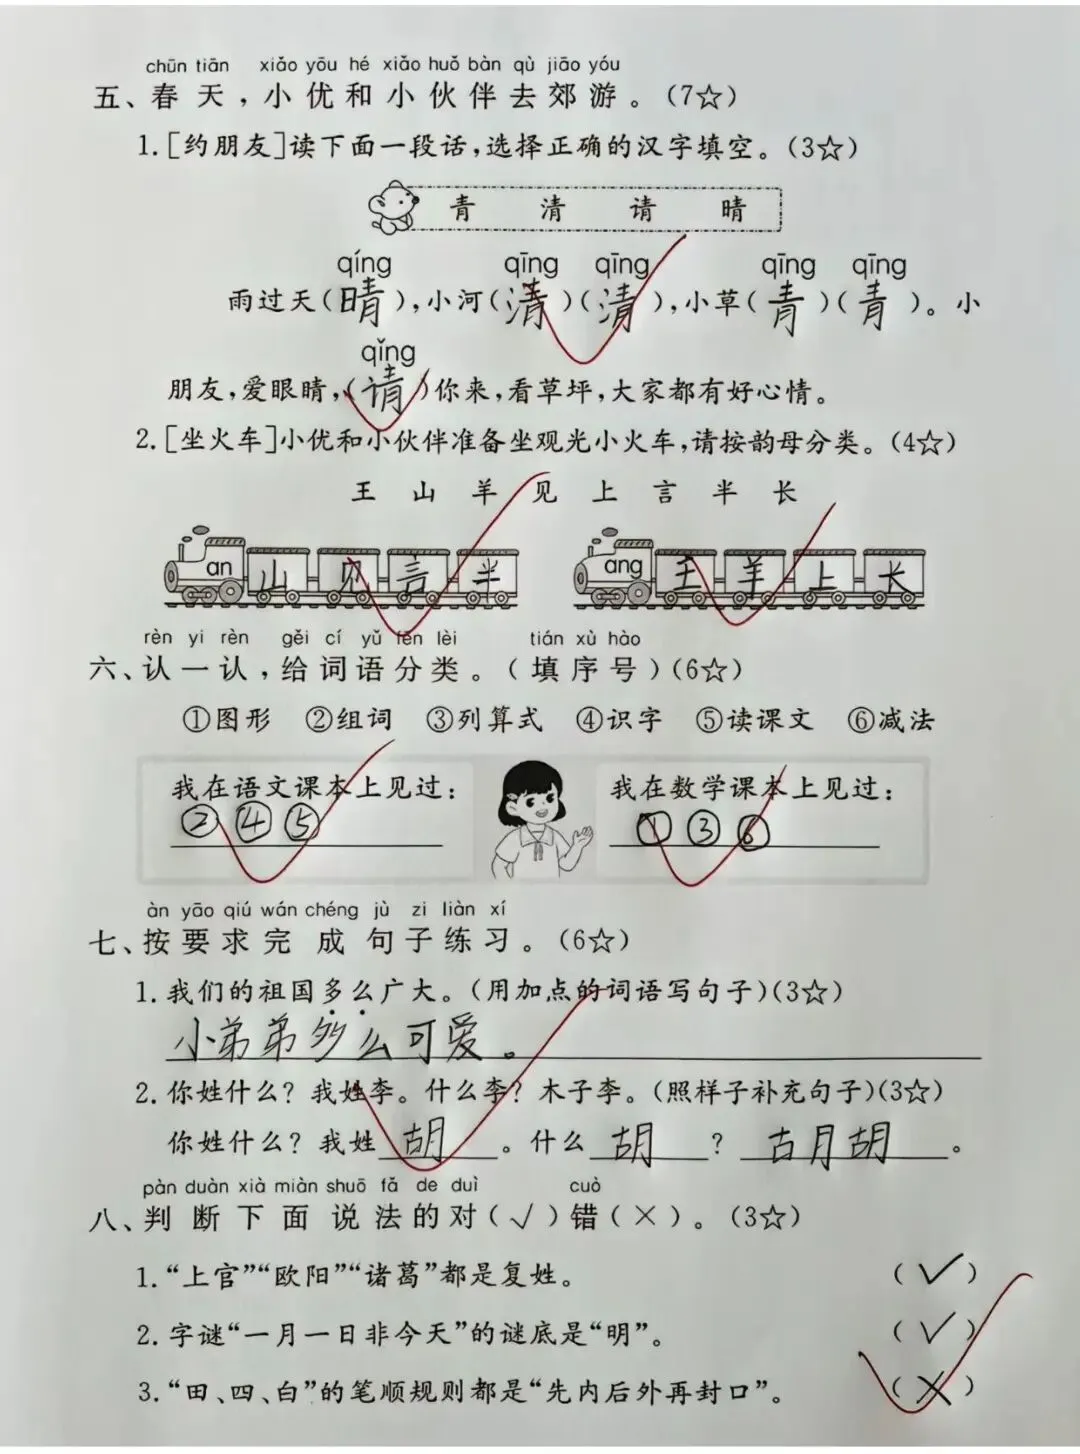 chūn tiān xiǎo yōu hé xiǎo huǒ bàn qù jiāo yóu
五、春天，小优和小伙伴去郊游。(7☆)
1.[约朋友]读下面一段话，选择正确的汉字填空。(3☆)
青 清 请 晴
qíng qīng qīng qīng qīng
雨过天(晴)，小河(清)(清)，小草(青)(青)。小
qǐng
朋友，爱眼睛，(请)你来，看草坪，大家都有好心情。
2.[坐火车]小优和小伙伴准备坐观光小火车，请按韵母分类。(4☆)
王 山 羊 见 上 言 半 长
an 山 见 言 半 ang 王 羊 上 长
rèn yi rèn gěi cí yǔ fēn lèi tián xù hào
六、认一认，给词语分类。(填序号)(6☆)
①图形 ②组词 ③列算式 ④识字 ⑤读课文 ⑥减法
我在语文课本上见过： 我在数学课本上见过：
②④⑤ ①③⑥
àn yāo qiú wán chéng jù zi liàn xí
七、按要求完成句子练习。(6☆)
1.我们的祖国多么广大。(用加点的词语写句子)(3☆)
小弟弟多么可爱。
2.你姓什么？我姓李。什么李？木子李。(照样子补充句子)(3☆)
你姓什么？我姓胡。什么胡？古月胡。
pàn duàn xià miàn shuō fǎ de duì cuò
八、判断下面说法的对(√)错(×)。(3☆)
1.“上官”“欧阳”“诸葛”都是复姓。 (√)
2.字谜“一月一日非今天”的谜底是“明”。 (√)
3.“田、四、白”的笔顺规则都是“先内后外再封口”。 (×)